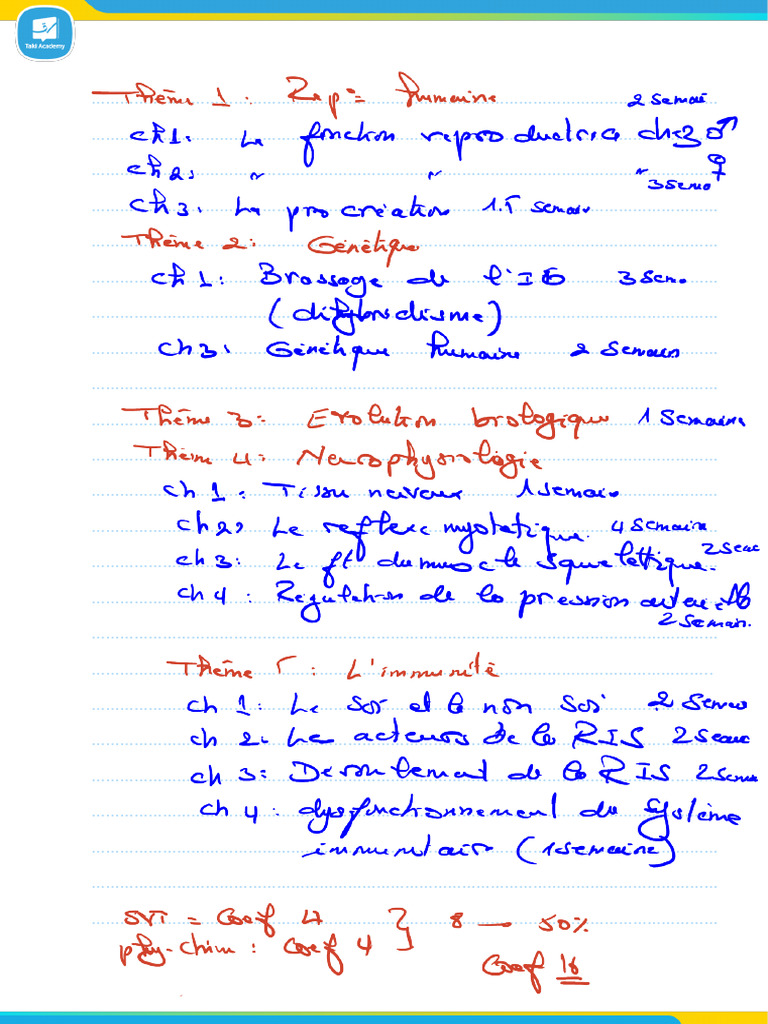 Taki Academy
Thème 1: Rep= humaine 2 semai
ch1: La fonction reproductrice chez ♂
ch2: " " " ♀ 3 semo
ch3: La procréation 1.5 semai
Thème 2: Génétique
ch1: Brassage de l'IG 3 sem
(dihybridisme)
ch3: Génétique humaine 2 semain
Thème 3: Evolution biologique 1 semaine
Thème 4: Neurophysiologie
ch 1: Tissu nerveux 1 semai
ch2: Le reflexe myotatique. 4 semaine
ch3: Le ft du muscle squelettique. 2 sem
ch4: Régulation de la pression
2 semain.
Thème 5: L'immunité
ch 1: Le soi et le non soi 2 semai
ch 2: Les acteurs de la RIS 2 sem
ch 3: Deroulement de la RIS 2 sem
ch 4: dysfonctionnement du système
immunitair (1 semaine)
SVT = Coef 4 } 8 — 50%
phy-chim: Coef 4
Coef 16